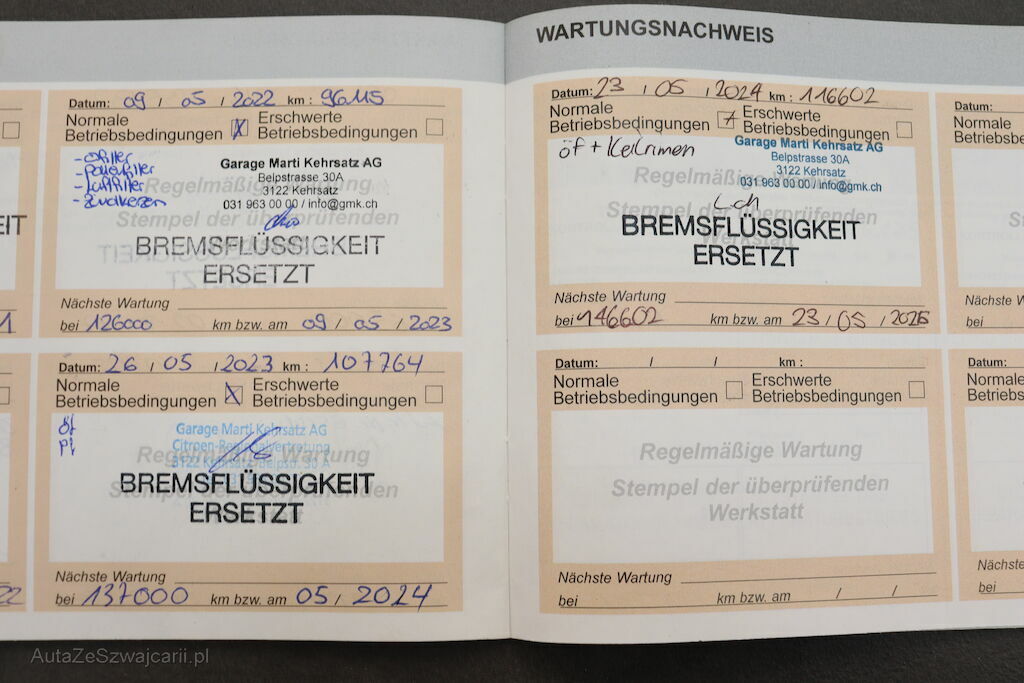 WARTUNGSNACHWEIS
Datum: 09 / 05 / 2022 km : 96115
Normale
Betriebsbedingungen X Erschwerte
Betriebsbedingungen
- Ölfilter
- Pollenfilter
- Luftfilter
- Zündkerzen
Garage Marti Kehrsatz AG
Belpstrasse 30A
3122 Kehrsatz
031 963 00 00 / info@gmk.ch
Regelmäßige Wartung
Stempel der überprüfenden
BREMSFLÜSSIGKEIT
ERSETZT
Nächste Wartung
bei 126000 km bzw. am 09 / 05 / 2023
Datum: 26 / 05 / 2023 km : 107764
Normale
Betriebsbedingungen X Erschwerte
Betriebsbedingungen
öf
Pf
Garage Marti Kehrsatz AG
Citroen-Regionalvertretung
3122 Kehrsatz Belpstr. 30 A
Regelmäßige Wartung
Stempel der überprüfenden
BREMSFLÜSSIGKEIT
ERSETZT
Nächste Wartung
bei 137000 km bzw. am 05 / 2024
Datum: 23 / 05 / 2024 km : 116602
Normale
Betriebsbedingungen Erschwerte
Betriebsbedingungen
öf + Keilriemen
Garage Marti Kehrsatz AG
Belpstrasse 30A
3122 Kehrsatz
031 963 00 00 / info@gmk.ch
Regelmäßige Wartung
Stempel der überprüfenden
Werkstatt
BREMSFLÜSSIGKEIT
ERSETZT
Nächste Wartung
bei 146602 km bzw. am 23 / 05 / 2026
Datum: / / km :
Normale
Betriebsbedingungen Erschwerte
Betriebsbedingungen
Regelmäßige Wartung
Stempel der überprüfenden
Werkstatt
Nächste Wartung
bei km bzw. am / /
Datum:
Normale
Nächste W
bei
Datum:
Normale
Betriebsb
Nächste
bei
AutaZeSzwajcarii.pl